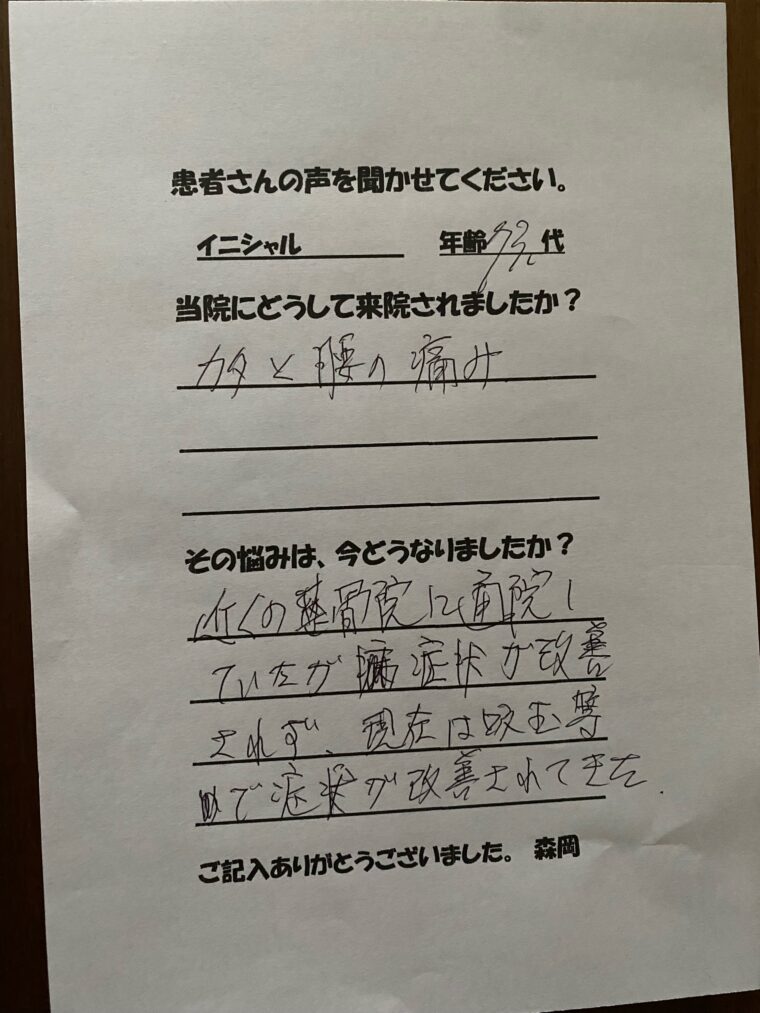 患者さんの声を聞かせてください。
イニシャル 年齢 代
当院にどうして来院されましたか？
カタと腰の痛み
その悩みは、今どうなりましたか？
近くの整骨院に通院し
ていたが 症状が改善
されず、現在は吸玉等
で症状が改善されてきた.
ご記入ありがとうございました。 森岡